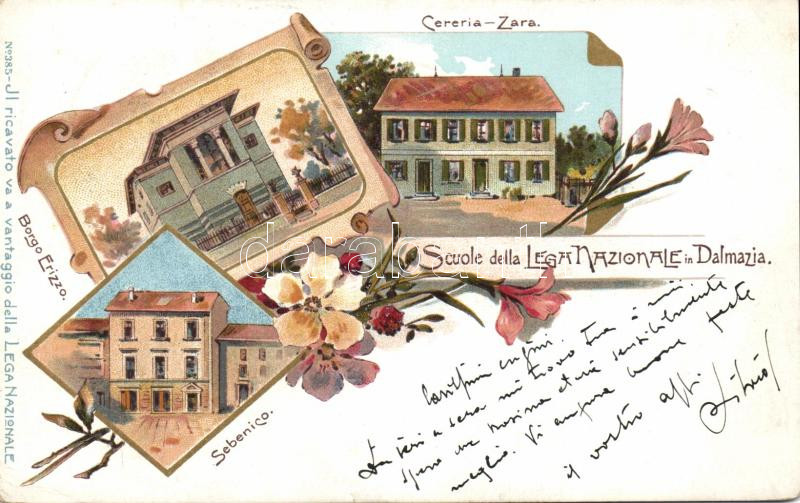 Cereria–Zara.
No 385 – Il ricavato va a vantaggio della LEGA NAZIONALE
Borgo Erizzo.
Scuole della LEGA NAZIONALE in Dalmazia.
Sebenico.
darabanth
Carissimi cugini.
Da ieri a sera mi trovo
spero che
meglio. Vi auguro buone feste
il vostro aff.